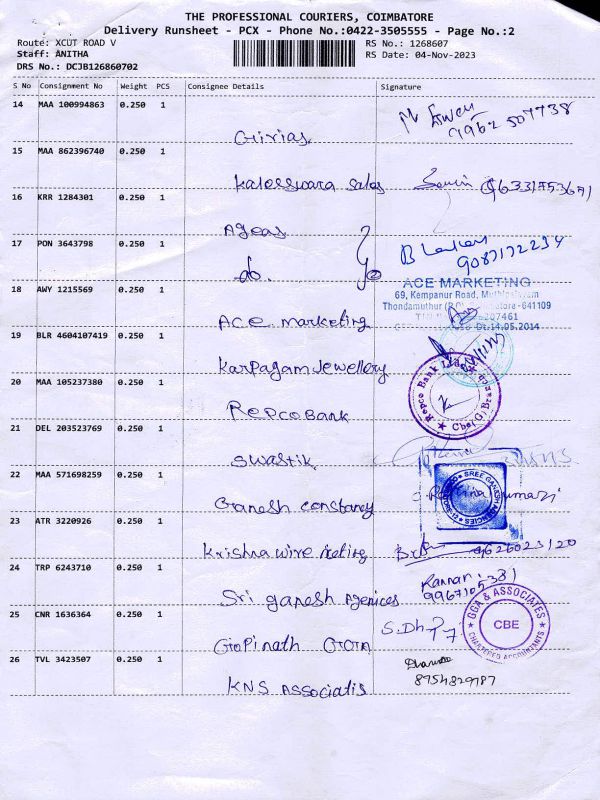 THE PROFESSIONAL COURIERS, COIMBATORE
Delivery Runsheet - PCX - Phone No.:0422-3505555 - Page No.:2
Route: XCUT ROAD V RS No.: 1268607
Staff: ANITHA RS Date: 04-Nov-2023
DRS No.: DCJB126860702
S No Consignment No Weight PCS Consignee Details Signature
14 MAA 100994863 0.250 1
Girias 9962 507738
15 MAA 862396740 0.250 1
Kaleeswara Sales
16 KRR 1284301 0.250 1
Ageas
17 PON 3643798 0.250 1
do. 9087172234
18 AWY 1215569 0.250 1
ACE MARKETING
69, Kempanur Road,
Thondamuthur - 641109
Dt:14.05.2014
Ace marketing
19 BLR 4604107419 0.250 1
Karpagam Jewellery
20 MAA 105237380 0.250 1
Repco Bank Ltd
Repco Bank
21 DEL 203523769 0.250 1
Swastik
22 MAA 571698259 0.250 1
SREE GANESH AGENCIES
Ganesh constancy
23 ATR 3220926 0.250 1
Krishna wire neting 9626023120
24 TRP 6243710 0.250 1
Kannan
9967105381
Sri ganesh Agenices
25 CNR 1636364 0.250 1
GGA & ASSOCIATES
CBE
CHARTERED ACCOUNTANTS
S.Dh
Gopinath
26 TVL 3423507 0.250 1
KNS Associatis 8754829787